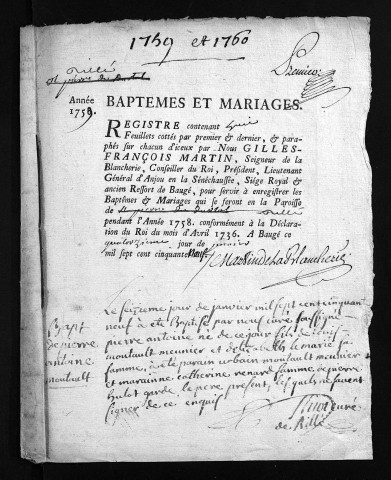 1759 et 1760
Rillé
Premier
Année
1759.
BAPTEMES ET MARIAGES.
REGISTRE contenant huit
Feuillets cottés par premier & dernier, & para-
phés sur chacun d'iceux par Nous GILLES-
FRANÇOIS MARTIN, Seigneur de la
Blancherie, Conseiller du Roi, Président, Lieutenant
Général d'Anjou en la Sénéchaussée, Siége Royal &
ancien Ressort de Baugé, pour servir à enregistrer les
Baptêmes & Mariages qui se feront en la Paroisse
de Rillé
pendant l'Année 1758. conformément à la Déclara-
tion du Roi du mois d'Avril 1736. A Baugé ce
quatorzième jour de janvier
mil sept cent cinquante neuf.
Martin de la Blancherie
Bapt
de pierre
antoine
moultault
Le seizieme jour de janvier mil sept cent cinquante
neuf a été Baptisé par nous curé soussigné
pierre antoine né de ce jour fils de
moultault meunier et de le marié sa
famme, a été parain urbain moultault meunier
et maraine catherine renard famme de pierre
hulot garde, le pere present, lesquels ne savent
signer de ce enquis
curé
de Rillé